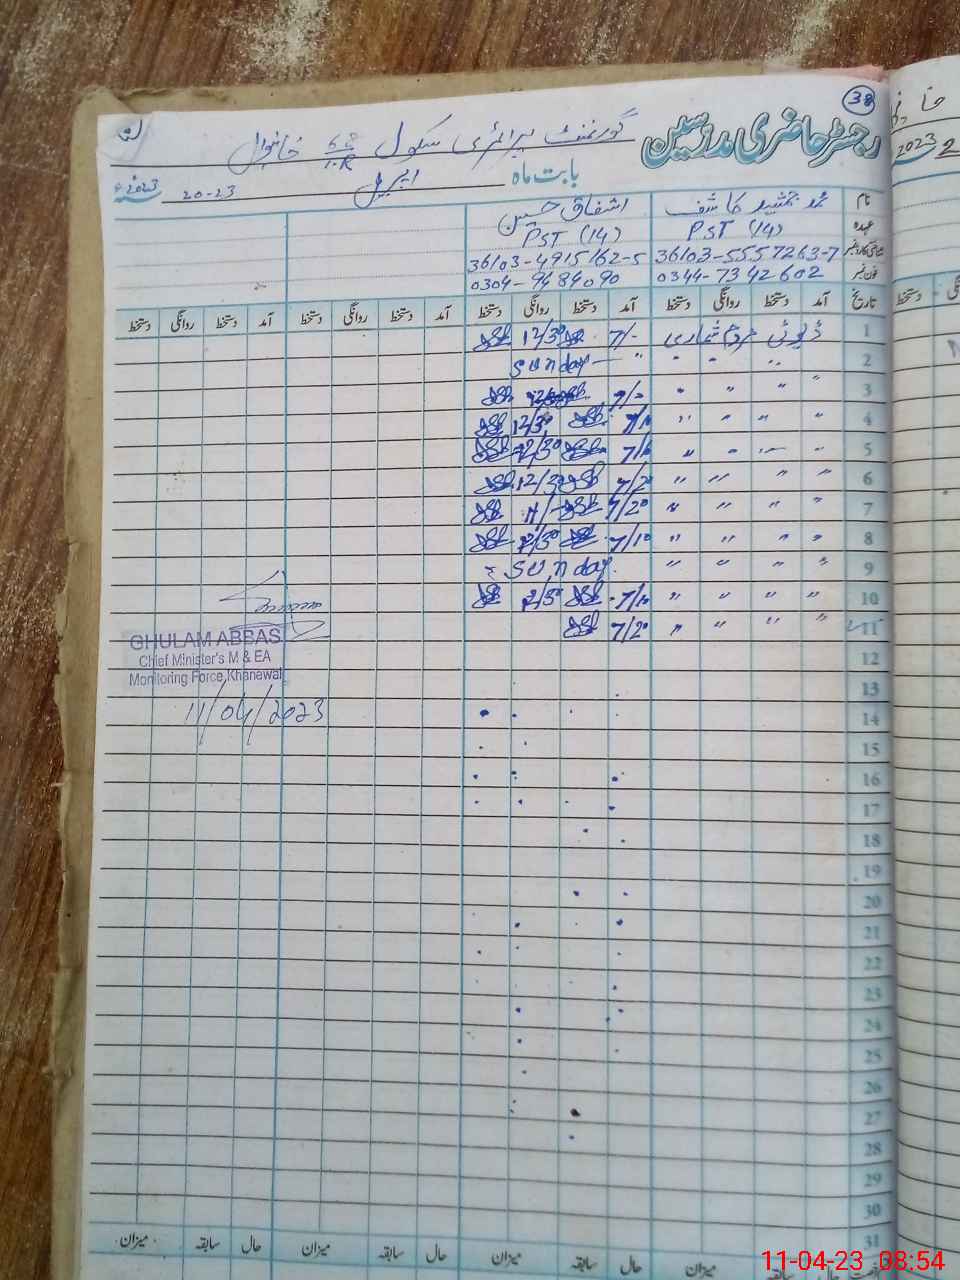 38
رجسٹر حاضری مدرسین
گورنمنٹ پرائمری سکول خانیوال
بابت ماہ اپریل 20-23 2023ء
نام محمد جمشید کاشف اشفاق حسین
عہدہ PST (14) PST (14)
شناختی کارڈ نمبر 36103-5557263-7 36103-4915162-5
فون نمبر 0344-7342602 0304-9484090
تاریخ آمد دستخط روانگی دستخط آمد دستخط روانگی دستخط آمد دستخط روانگی دستخط آمد دستخط روانگی دستخط
1 ڈیوٹی مردم شماری 7/- 12/30
2 " " " " " Sunday
3 " " " " 7/-
4 " " " " 7/10 12/30
5 " " " 7/10 12/30
6 " " " " 7/20 12/30
7 " " " " 7/20 11/-
8 " " " " 7/10 12/30
9 " " " " Sunday
10 " " " " 7/10 12/30
11 " " " " 7/20
GHULAM ABBAS
Chief Minister's M & EA
Monitoring Force, Khanewal
11/04/2023
12
13
14
15
16
17
18
19
20
21
22
23
24
25
26
27
28
29
30
31
حال سابقہ میزان حال سابقہ میزان حال سابقہ میزان حال سابقہ میزان
2023
11-04-23 08:54